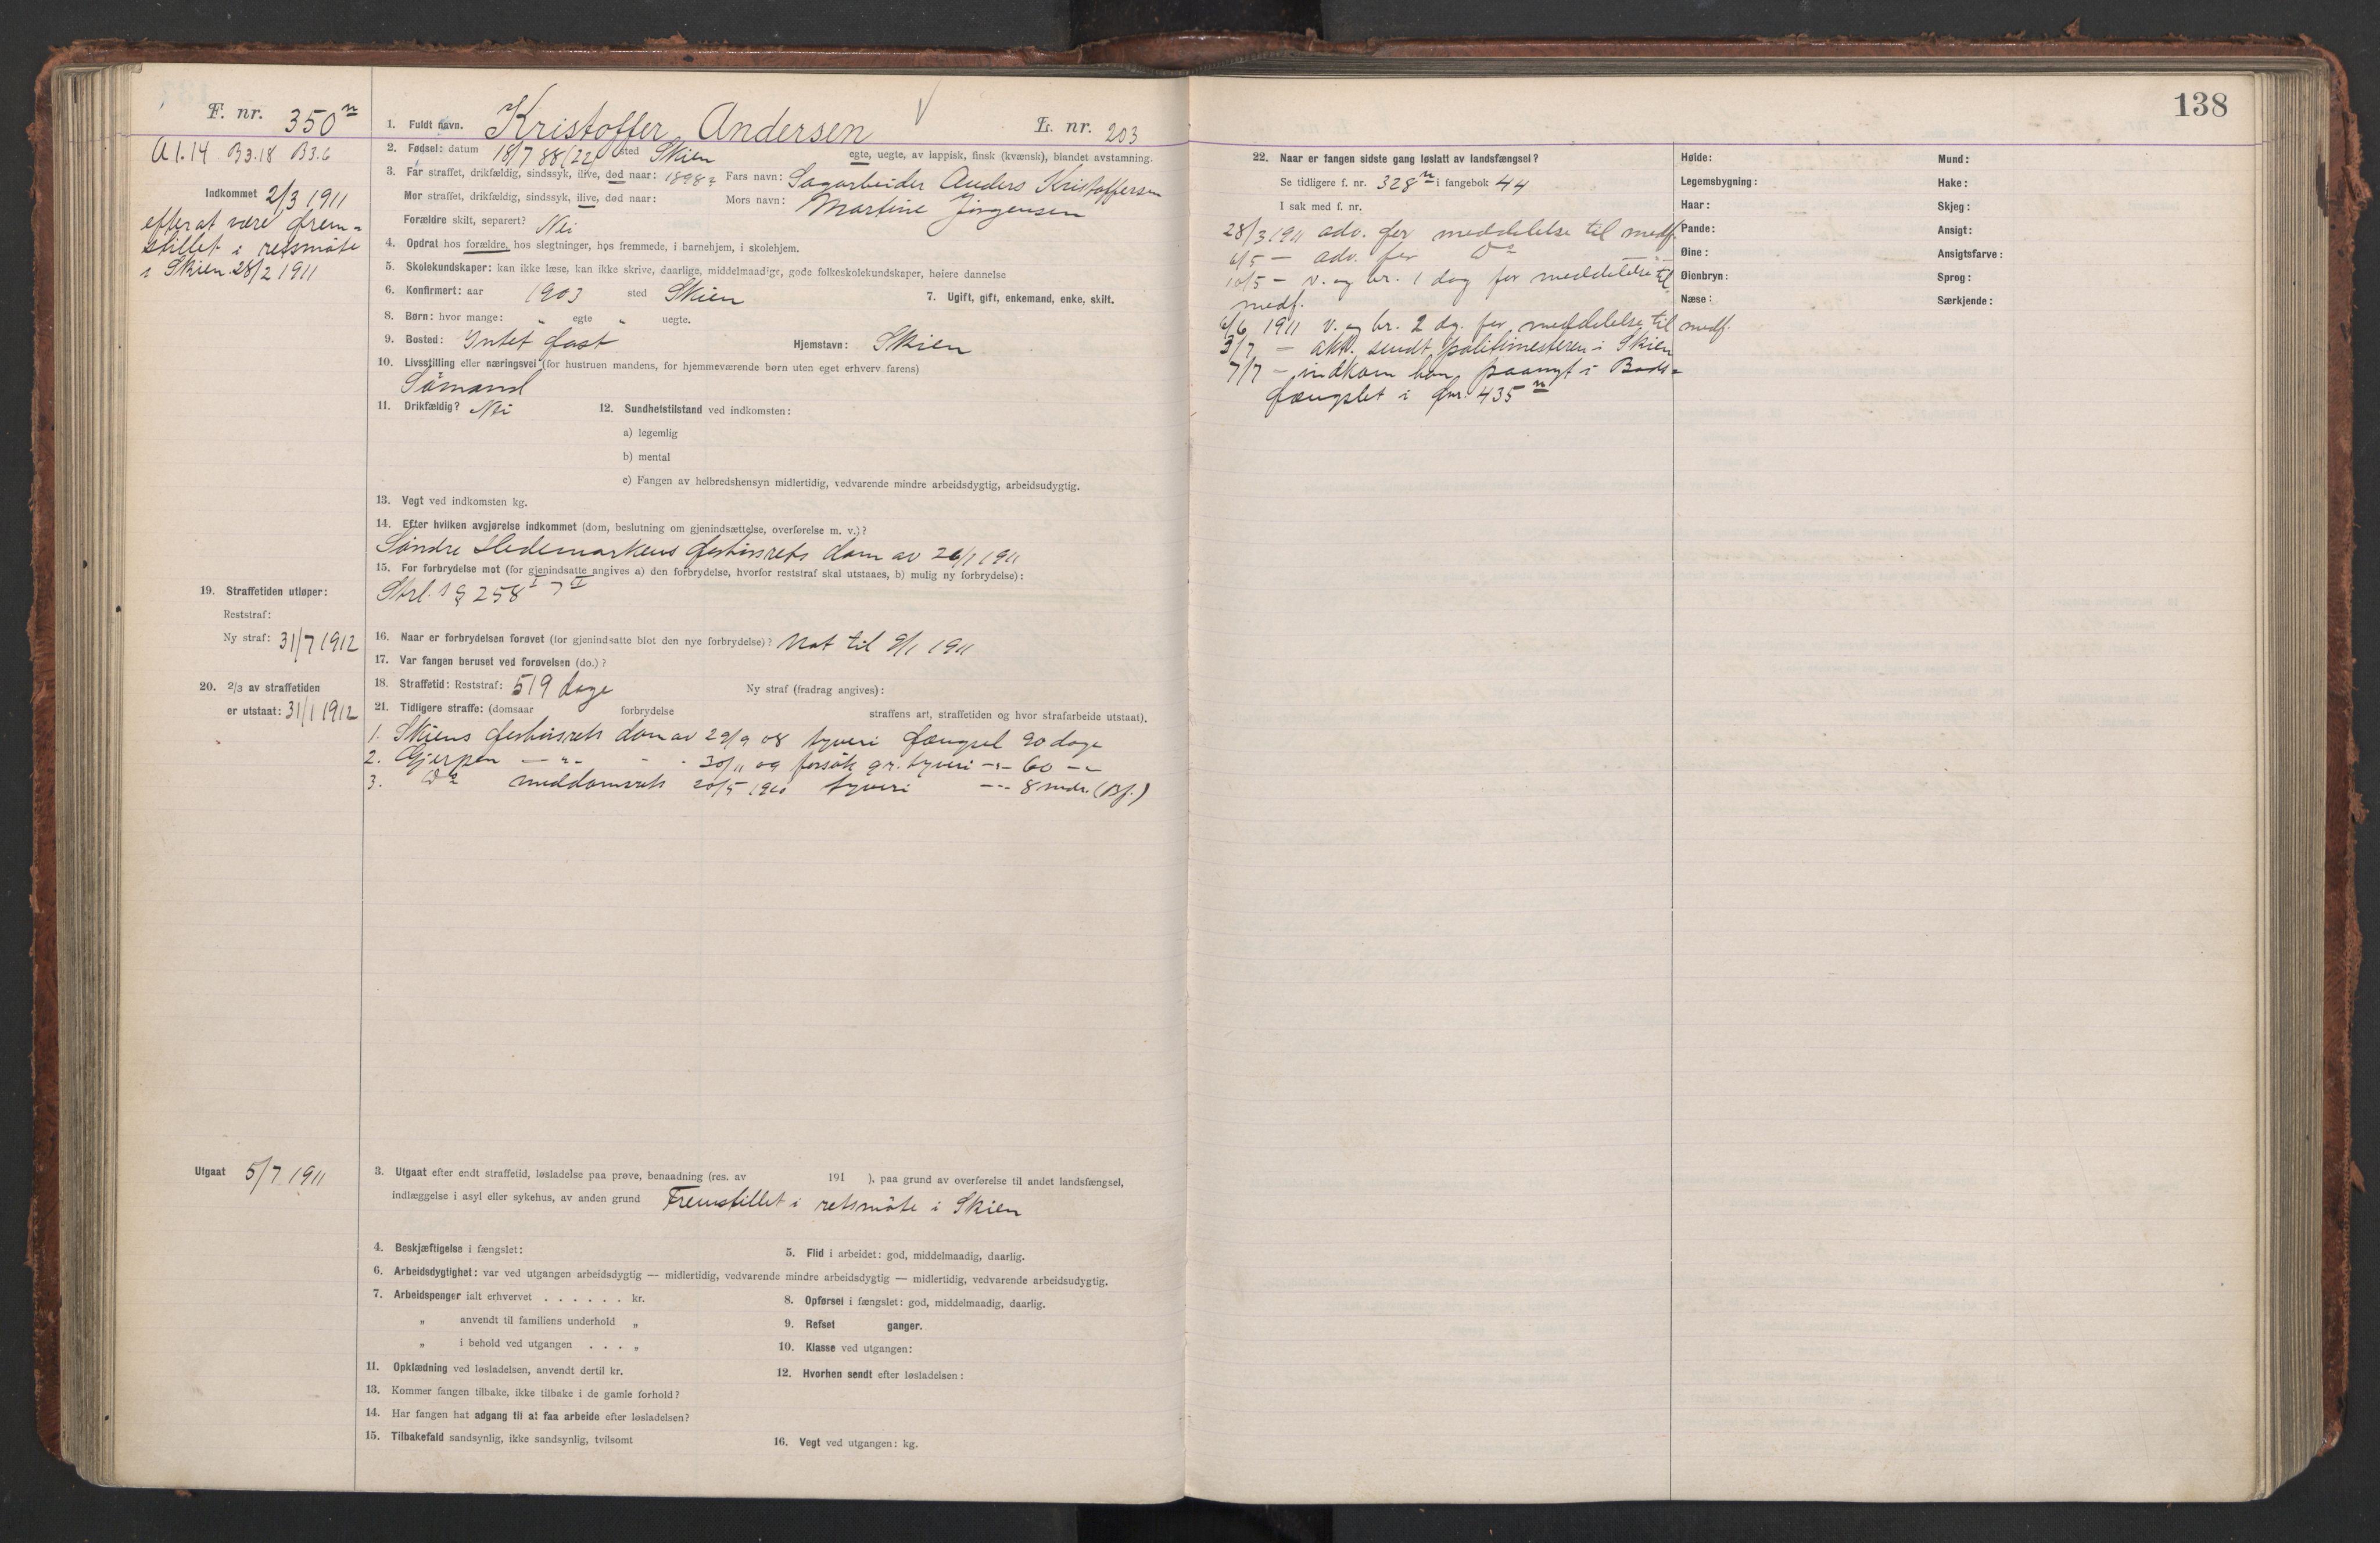 F. nr. 350ⁿ
A 1.14 B3.18 B3.6
Indkommet 2/3 1911
efter at være frem=
stillet i retsmöte
i Skien 28/2 1911
1. Fuldt navn. Kristoffer Andersen L. nr. 203
2. Fødsel: datum 18/7 88 (22) sted Skien egte, uegte, av lappisk, finsk (kvænsk), blandet avstamning.
3. Far straffet, drikfældig, sindssyk, ilive, død naar: 1898? Fars navn: Sagarbeider Anders Kristoffersen
Mor straffet, drikfældig, sindssyk, ilive, død naar: Mors navn: Martine Jörgensen
Forældre skilt, separert? Nei
4. Opdrat hos forældre, hos slegtninger, hos fremmede, i barnehjem, i skolehjem.
5. Skolekundskaper: kan ikke læse, kan ikke skrive, daarlige, middelmaadige, gode folkeskolekundskaper, høiere dannelse
6. Konfirmert: aar 1903 sted Skien 7. Ugift, gift, enkemand, enke, skilt.
8. Børn: hvor mange: " egte " uegte.
9. Bosted: Intet fast Hjemstavn: Skien
10. Livsstilling eller næringsvei (for hustruen mandens, for hjemmeværende børn uten eget erhverv farens)
Sömand
11. Drikfældig? Nei 12. Sundhetstilstand ved indkomsten:
a) legemlig
b) mental
c) Fangen av helbredshensyn midlertidig, vedvarende mindre arbeidsdygtig, arbeidsudygtig.
13. Vegt ved indkomsten kg.
14. Efter hvilken avgjørelse indkommet (dom, beslutning om gjenindsættelse, overførelse m. v.)?
Söndre Hedemarkens forhörsrets dom av 26/1 1911
15. For forbrydelse mot (for gjenindsatte angives a) den forbrydelse, hvorfor reststraf skal utstaaes, b) mulig ny forbrydelse):
Strl. § 258
19. Straffetiden utløper:
Reststraf:
Ny straf: 31/7 1912
16. Naar er forbrydelsen forøvet (for gjenindsatte blot den nye forbrydelse)? Nat til 9/1 1911
17. Var fangen beruset ved forøvelsen (do.)?
20. 2/3 av straffetiden
er utstaat: 31/1 1912
18. Straffetid: Reststraf: 519 dage Ny straf (fradrag angives):
21. Tidligere straffe: (domsaar forbrydelse straffens art, straffetiden og hvor strafarbeide utstaat).
1. Skiens forhörsrets dom av 29/9 08 tyveri fængsel 90 dage
2. Gjerpen — " — - - 30/11 09 forsök gr. tyveri — " — 60 — " —
3. Do meddomsrets 20/5 1910 tyveri — " — 8 mdr. (Bf.)
Utgaat 5/7 1911
3. Utgaat efter endt straffetid, løsladelse paa prøve, benaadning (res. av 191 ), paa grund av overførelse til andet landsfængsel,
indlæggelse i asyl eller sykehus, av anden grund Fremstillet i retsmöte i Skien
4. Beskjæftigelse i fængslet: 5. Flid i arbeidet: god, middelmaadig, daarlig.
6. Arbeidsdygtighet: var ved utgangen arbeidsdygtig — midlertidig, vedvarende mindre arbeidsdygtig — midlertidig, vedvarende arbeidsudygtig.
7. Arbeidspenger ialt erhvervet . . . . . . kr. 8. Opførsel i fængslet: god, middelmaadig, daarlig.
" anvendt til familiens underhold " 9. Refset ganger.
" i behold ved utgangen . . . " 10. Klasse ved utgangen:
11. Opklædning ved løsladelsen, anvendt dertil kr. 12. Hvorhen sendt efter løsladelsen:
13. Kommer fangen tilbake, ikke tilbake i de gamle forhold?
14. Har fangen hat adgang til at faa arbeide efter løsladelsen?
15. Tilbakefald sandsynlig, ikke sandsynlig, tvilsomt 16. Vegt ved utgangen: kg.
138
22. Naar er fangen sidste gang løslatt av landsfængsel?
Se tidligere f. nr. 328ⁿ i fangebok 44
I sak med f. nr.
28/3 1911 adv. for meddelelse til medf.
6/5 — adv. for Do
10/5 — v. og br. 1 dag for meddelelse til
medf.
6/6 1911 v. og br. 2 dg. for meddelelse til medf.
3/7 — akt. sendt politimesteren i Skien
7/7 — indkom han paanyt i Bods=
fængslet i fnr. 435ⁿ
Høide: Mund:
Legemsbygning: Hake:
Haar: Skjeg:
Pande: Ansigt:
Øine: Ansigtsfarve:
Øienbryn: Sprog:
Næse: Særkjende: